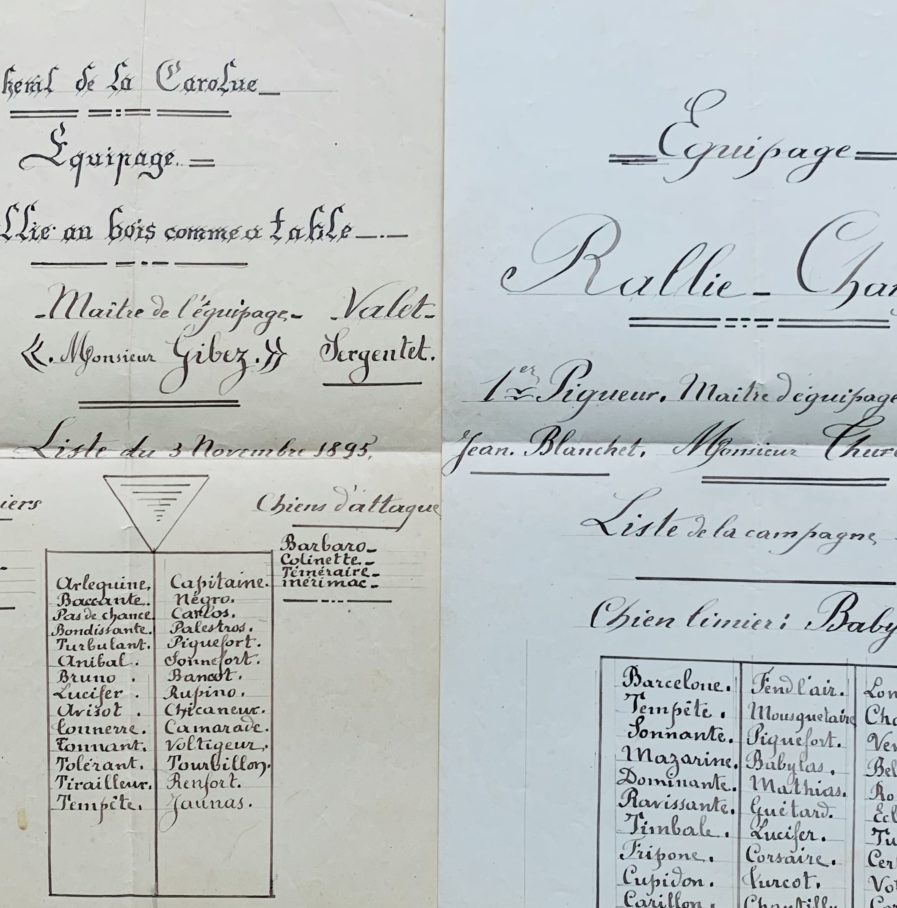 de la Carolue
Equipage.
au bois comme a table
Maître de l'équipage Valet
«. Monsieur Gibez.» Sergentet.
Liste du 3 Novembre 1895.
Chiens d'attaque
Barbaro
Colinette
Téméraire
merimac
Arlequine. Capitaine.
Baccante. Négro.
Pas de chance Carlos.
Bondissante. Palestros.
Turbulant. Piquefort.
Anibal. Sonnefort.
Bruno. Bancot.
Lucifer. Rupino.
Chicaneur.
Tounerre. Camarade.
Tonnant. Voltigeur.
Tolérant. Tourbillon.
Tirailleur. Renfort.
Tempête. Jaunas.
Equipage
Rallie - Char
1er Piqueur. Maître d'équipage
Jean. Blanchet. Monsieur
Liste de la campagne
Chien limier: Baby
Barcelone. Fend l'air. Lon
Tempête. Mousquetaire Cha
Sonnante. Piquefort. Ver
Mazarine. Babylas. Bel
Dominante. Mathias. Ro
Ravissante. Guétard. Ecl
Timbale. Lucifer. Tu
Fripone. Corsaire. Cer
Cupidon. Vo
Carillon.